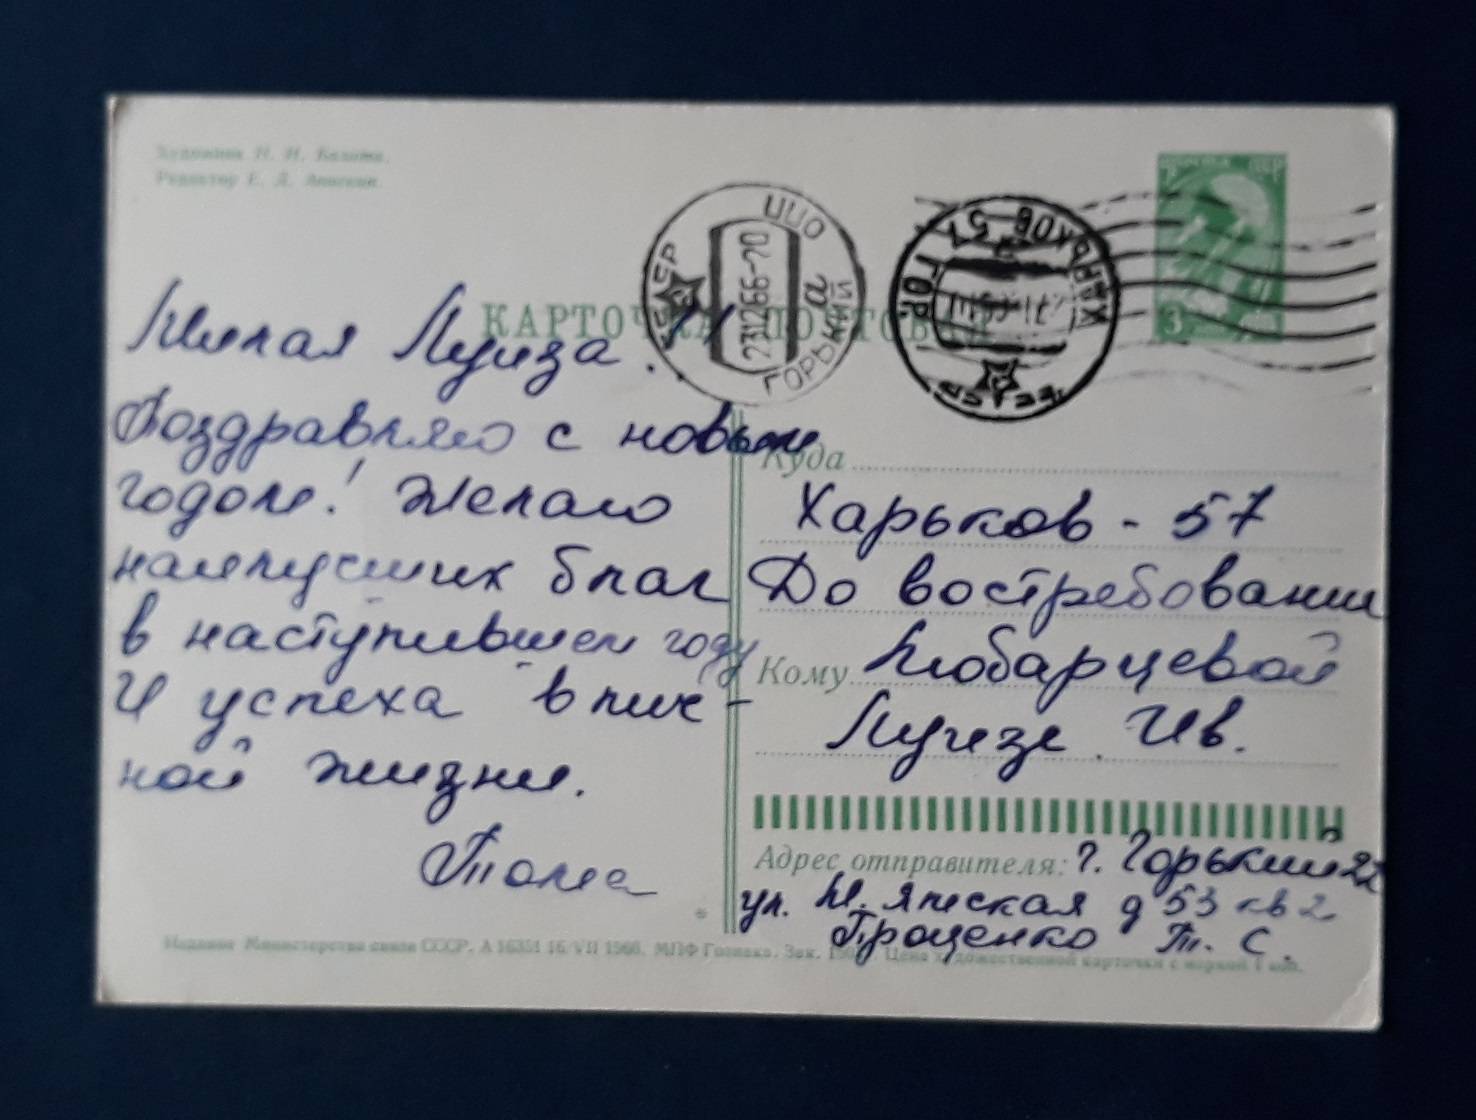 Художник Н. Н.
Редактор Е. Д. Анискин.
ПОЧТА СССР
3
СССР ЦЦО
231266-20
ГОРЬКИЙ а
ХАРЬКОВ 57 ГОР.
КАРТОЧКА ПОЧТОВАЯ
Милая Луиза!
Поздравляю с новым
годом! Желаю
наилучших благ
в наступившем году
И успеха в лич-
ной жизни.
Тома
Куда
Харьков - 57
До востребования
Кому Любарцевой
Луизе Ив.
Адрес отправителя: г. Горький 22
ул. М. Ямская д 53 кв 2
Проценко Т. С.
Издание Министерства связи СССР. А 16351 16/VII 1966. МПФ Гознака. Зак. Цена художественной карточки с маркой 4 коп.